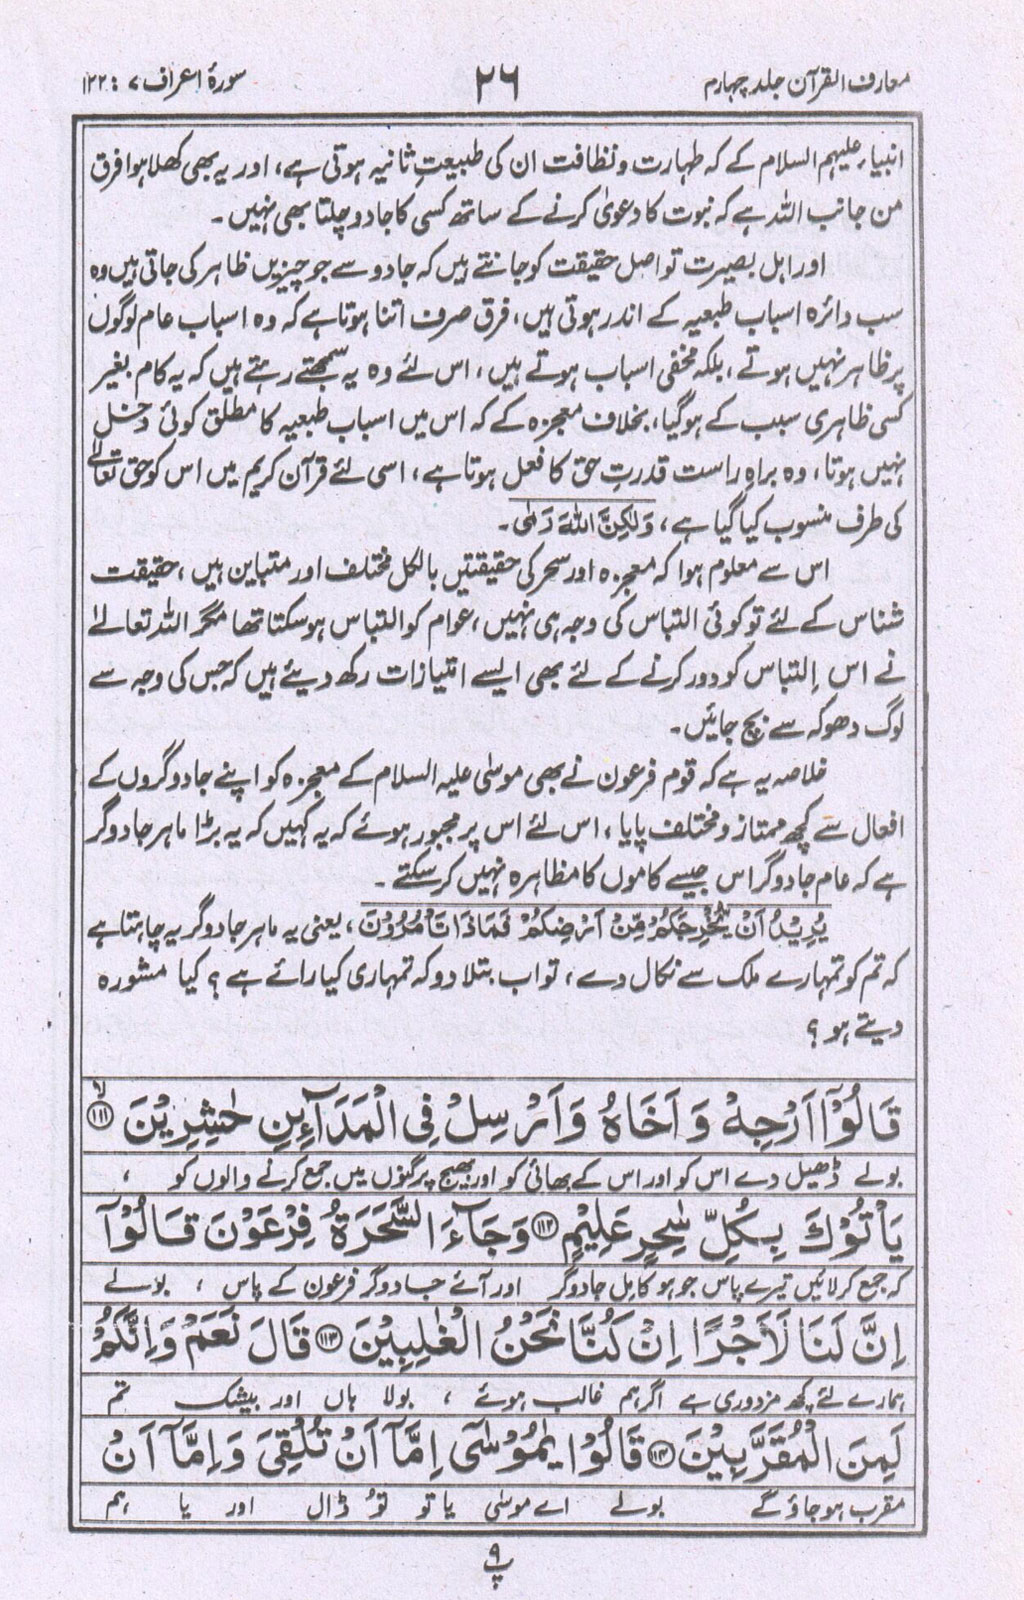 معارف القرآن جلد چہارم
۲۶
سورۂ اعراف ۷ : ۱۲۲
انبیاء علیہم السلام کے کہ طہارت و نظافت ان کی طبیعتِ ثانیہ ہوتی ہے، اور یہ بھی کھلا ہوا فرق
من جانب اللہ ہے کہ نبوت کا دعویٰ کرنے کے ساتھ کسی کا جادو چلتا بھی نہیں۔
اور اہل بصیرت تو اصل حقیقت کو جانتے ہیں کہ جادو سے جو چیزیں ظاہر کی جاتی ہیں وہ
سب دائرہ اسباب طبعیہ کے اندر ہوتی ہیں، فرق صرف اتنا ہوتا ہے کہ وہ اسباب عام لوگوں
پر ظاہر نہیں ہوتے، بلکہ مخفی اسباب ہوتے ہیں، اس لئے وہ یہ سمجھتے رہتے ہیں کہ یہ کام بغیر
کسی ظاہری سبب کے ہو گیا، بخلاف معجزہ کے کہ اس میں اسباب طبعیہ کا مطلق کوئی دخل
نہیں ہوتا، وہ براہِ راست قدرتِ حق کا فعل ہوتا ہے، اسی لئے قرآن کریم میں اس کو حق تعالےٰ
کی طرف منسوب کیا گیا ہے، وَلٰكِنَّ اللّٰهَ رَمٰى۔
اس سے معلوم ہوا کہ معجزہ اور سحر کی حقیقتیں بالکل مختلف اور متباین ہیں، حقیقت
شناس کے لئے تو کوئی التباس کی وجہ ہی نہیں، عوام کو التباس ہو سکتا تھا مگر اللہ تعالےٰ
نے اس اِلتباس کو دور کرنے کے لئے بھی ایسے امتیازات رکھ دیئے ہیں کہ جس کی وجہ سے
لوگ دھوکہ سے بچ جائیں۔
خلاصہ یہ ہے کہ قوم فرعون نے بھی موسٰی علیہ السلام کے معجزہ کو اپنے جادوگروں کے
افعال سے کچھ ممتاز و مختلف پایا، اس لئے اس پر مجبور ہوئے کہ یہ کہیں کہ یہ بڑا ماہر جادوگر
ہے کہ عام جادوگر اس جیسے کاموں کا مظاہرہ نہیں کر سکتے۔
يُرِيْدُ اَنْ يُّخْرِجَكُمْ مِّنْ اَرْضِكُمْ فَمَاذَا تَاْمُرُوْنَ، یعنی یہ ماہر جادوگر یہ چاہتا ہے
کہ تم کو تمہارے ملک سے نکال دے، تو اب بتلا دو کہ تمہاری کیا رائے ہے؟ کیا مشورہ
دیتے ہو؟
قَالُوْٓا اَرْجِهْ وَاَخَاهُ وَاَرْسِلْ فِي الْمَدَآءِنِ حٰشِرِيْنَ ﴿۱۱۱﴾ۙ
بولے ڈھیل دے اس کو اور اس کے بھائی کو اور بھیج پرگنوں میں جمع کرنے والوں کو ،
يَاْتُوْكَ بِكُلِّ سٰحِرٍ عَلِيْمٍ ﴿۱۱۲﴾ وَجَآءَ السَّحَرَةُ فِرْعَوْنَ قَالُوْٓا
کہ جمع کر لائیں تیرے پاس جو ہو کامل جادوگر اور آئے جادوگر فرعون کے پاس ، بولے
اِنَّ لَنَا لَاَجْرًا اِنْ كُنَّا نَحْنُ الْغٰلِبِيْنَ ﴿۱۱۳﴾ قَالَ نَعَمْ وَاِنَّكُمْ
ہمارے لئے کچھ مزدوری ہے اگر ہم غالب ہوئے ، بولا ہاں اور بیشک تم
لَمِنَ الْمُقَرَّبِيْنَ ﴿۱۱۴﴾ قَالُوْا يٰمُوْسٰٓى اِمَّآ اَنْ تُلْقِيَ وَاِمَّآ اَنْ
مقرب ہو جاؤ گے بولے اے موسٰی یا تو تُو ڈال اور یا ہم
پ ۹